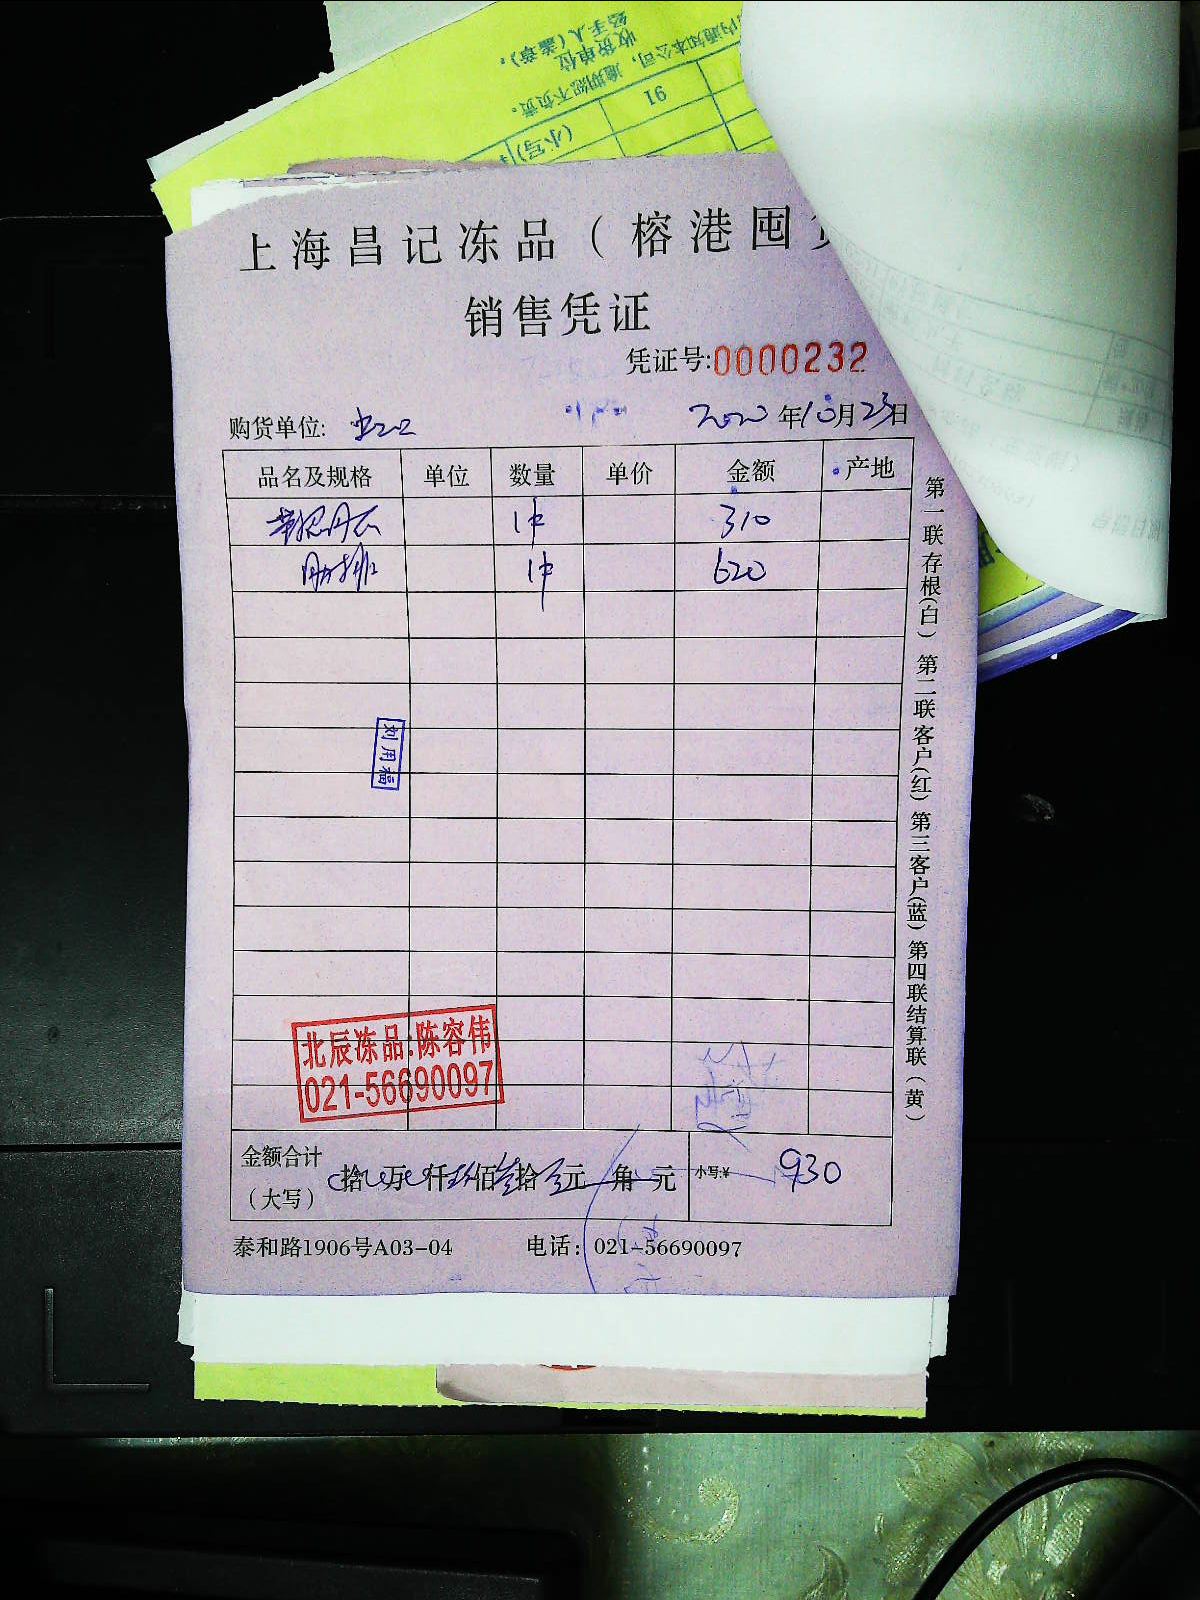 收货单位
经手人（盖章）。
内通知本公司，逾期恕不负责。
16
（小写）
上海昌记冻品（榕港囤
销售凭证
凭证号:0000232
购货单位:
2020年10月23日
品名及规格 单位 数量 单价 金额 产地
1件 310
肋排 1件 620
刘用福
北辰冻品:陈容伟
021-56690097
金额合计（大写） 拾 万 仟玖佰叁拾元 角 元 小写:¥ 930
泰和路1906号A03-04 电话：021-56690097
第一联存根（白） 第二联客户（红） 第三客户（蓝） 第四联结算联（黄）